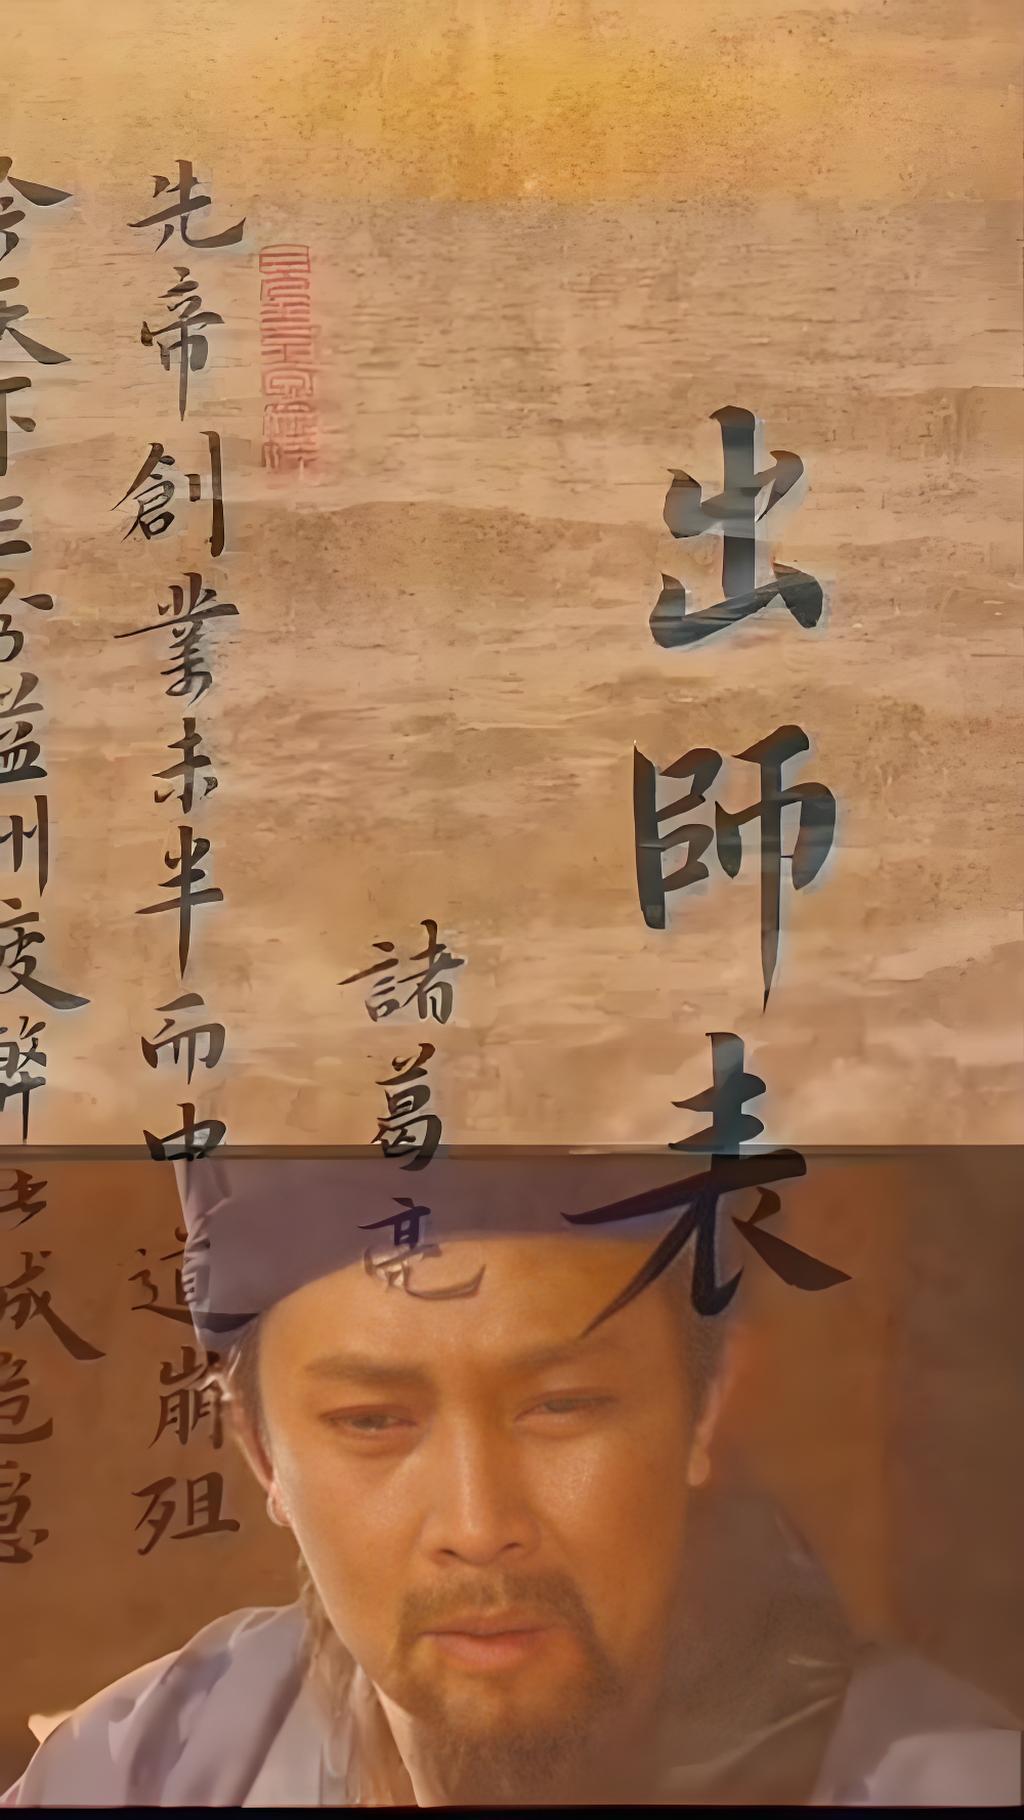 出師表
諸葛亮
先帝創業未半而中道崩殂
今天下三分益州疲弊
成危急